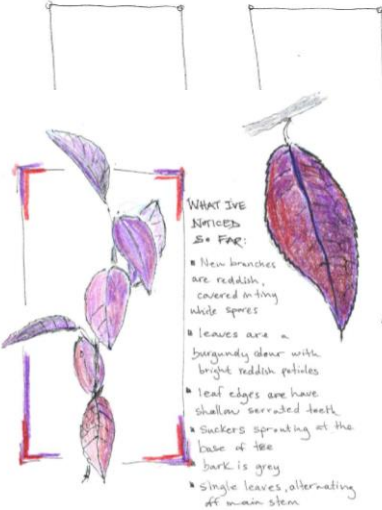 WHAT IVE
NOTICED
SO FAR:
New branches
are reddish,
covered in tiny
white spores
leaves are a
burgundy colour with
bright reddish petioles
leaf edges are have
shallow serrated teeth
Suckers sprouting at the
base of tree
bark is grey
single leaves, alternating
off main stem